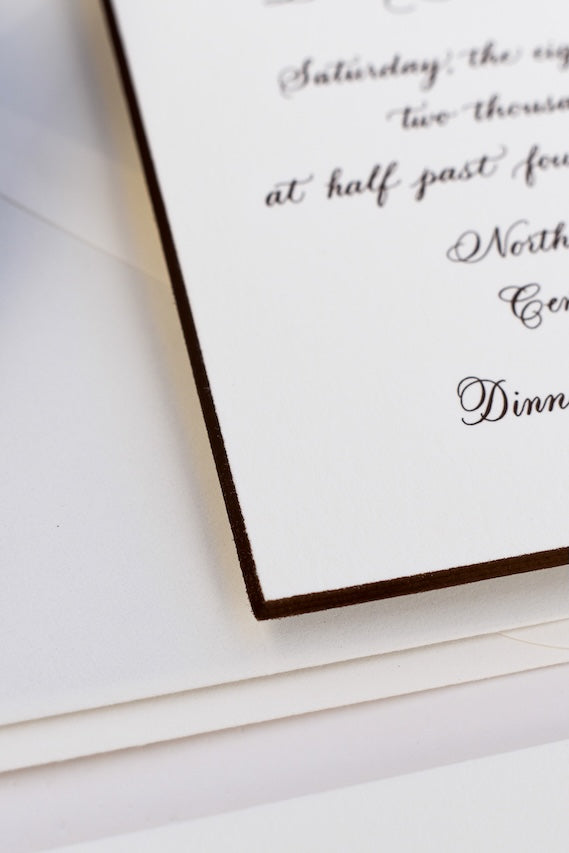 Saturday, the eig
two thousa
at half past fou
North
Cen
Dinn